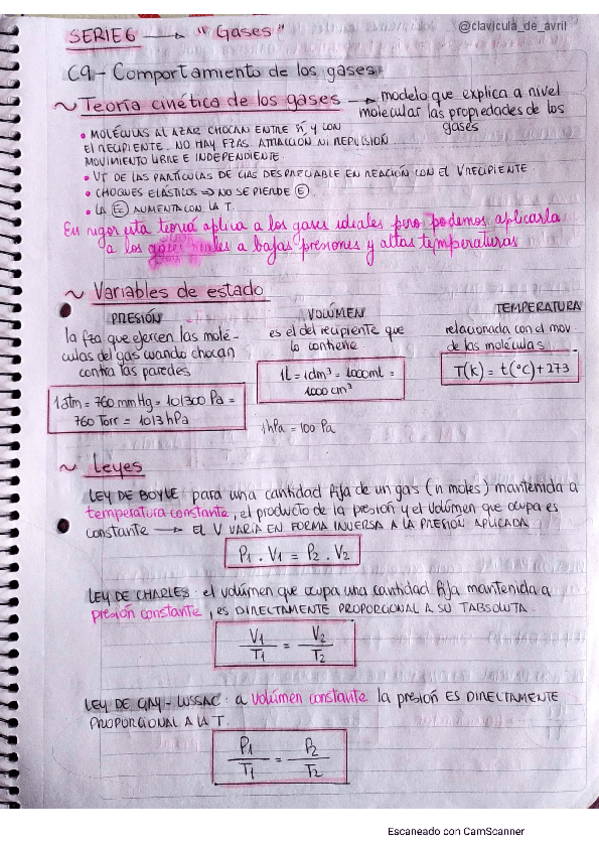 SERIE 6 → "Gases"
@clavicula_de_avril
C9 - Comportamiento de los gases
~ Teoría cinética de los gases → modelo que explica a nivel
molecular las propiedades de los
gases
• MOLÉCULAS AL AZAR CHOCAN ENTRE SÍ, Y CON
EL RECIPIENTE. NO HAY FZAS. ATRACCIÓN NI REPULSIÓN
MOVIMIENTO LIBRE E INDEPENDIENTE.
• VT DE LAS PARTÍCULAS DE GAS DESPRECIABLE EN REACIÓN CON EL V RECIPIENTE
• CHOQUES ELÁSTICOS ⇒ NO SE PIERDE E
• LA Ec AUMENTA CON LA T.
En rigor esta teoría aplica a los gases ideales pero podemos aplicarla
a los gases reales a bajas presiones y altas temperaturas
~ Variables de estado
PRESIÓN
la fza que ejercen las molé-
culas del gas cuando chocan
contra las paredes
1 atm = 760 mmHg = 101300 Pa =
760 Torr = 1013 hPa
VOLÚMEN
es el del recipiente que
lo contiene
1L = 1dm³ = 1000ml =
1000 cm³
1 hPa = 100 Pa
TEMPERATURA
relacionada con el mov.
de las moléculas
T(K) = t(°C) + 273
~ Leyes
LEY DE BOYLE: para una cantidad fija de un gas (n moles) mantenida a
temperatura constante, el producto de la presión y el volúmen que ocupa es
constante → EL V VARÍA EN FORMA INVERSA A LA PRESIÓN APLICADA
P1 . V1 = P2 . V2
LEY DE CHARLES: el volúmen que ocupa una cantidad fija mantenida a
presión constante, es DIRECTAMENTE PROPORCIONAL A SU TABSOLUTA
V1/T1 = V2/T2
LEY DE GAY-LUSSAC: a volúmen constante la presión ES DIRECTAMENTE
PROPORCIONAL A LA T.
P1/T1 = P2/T2
Escaneado con CamScanner